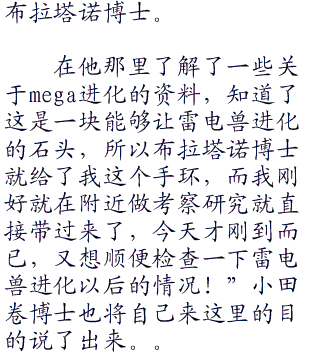 布拉塔诺博士。
在他那里了解了一些关
于mega进化的资料，知道了
这是一块能够让雷电兽进化
的石头，所以布拉塔诺博士
就给了我这个手环，而我刚
好就在附近做考察研究就直
接带过来了，今天才刚到而
已，又想顺便检查一下雷电
兽进化以后的情况！”小田
卷博士也将自己来这里的目
的说了出来。。